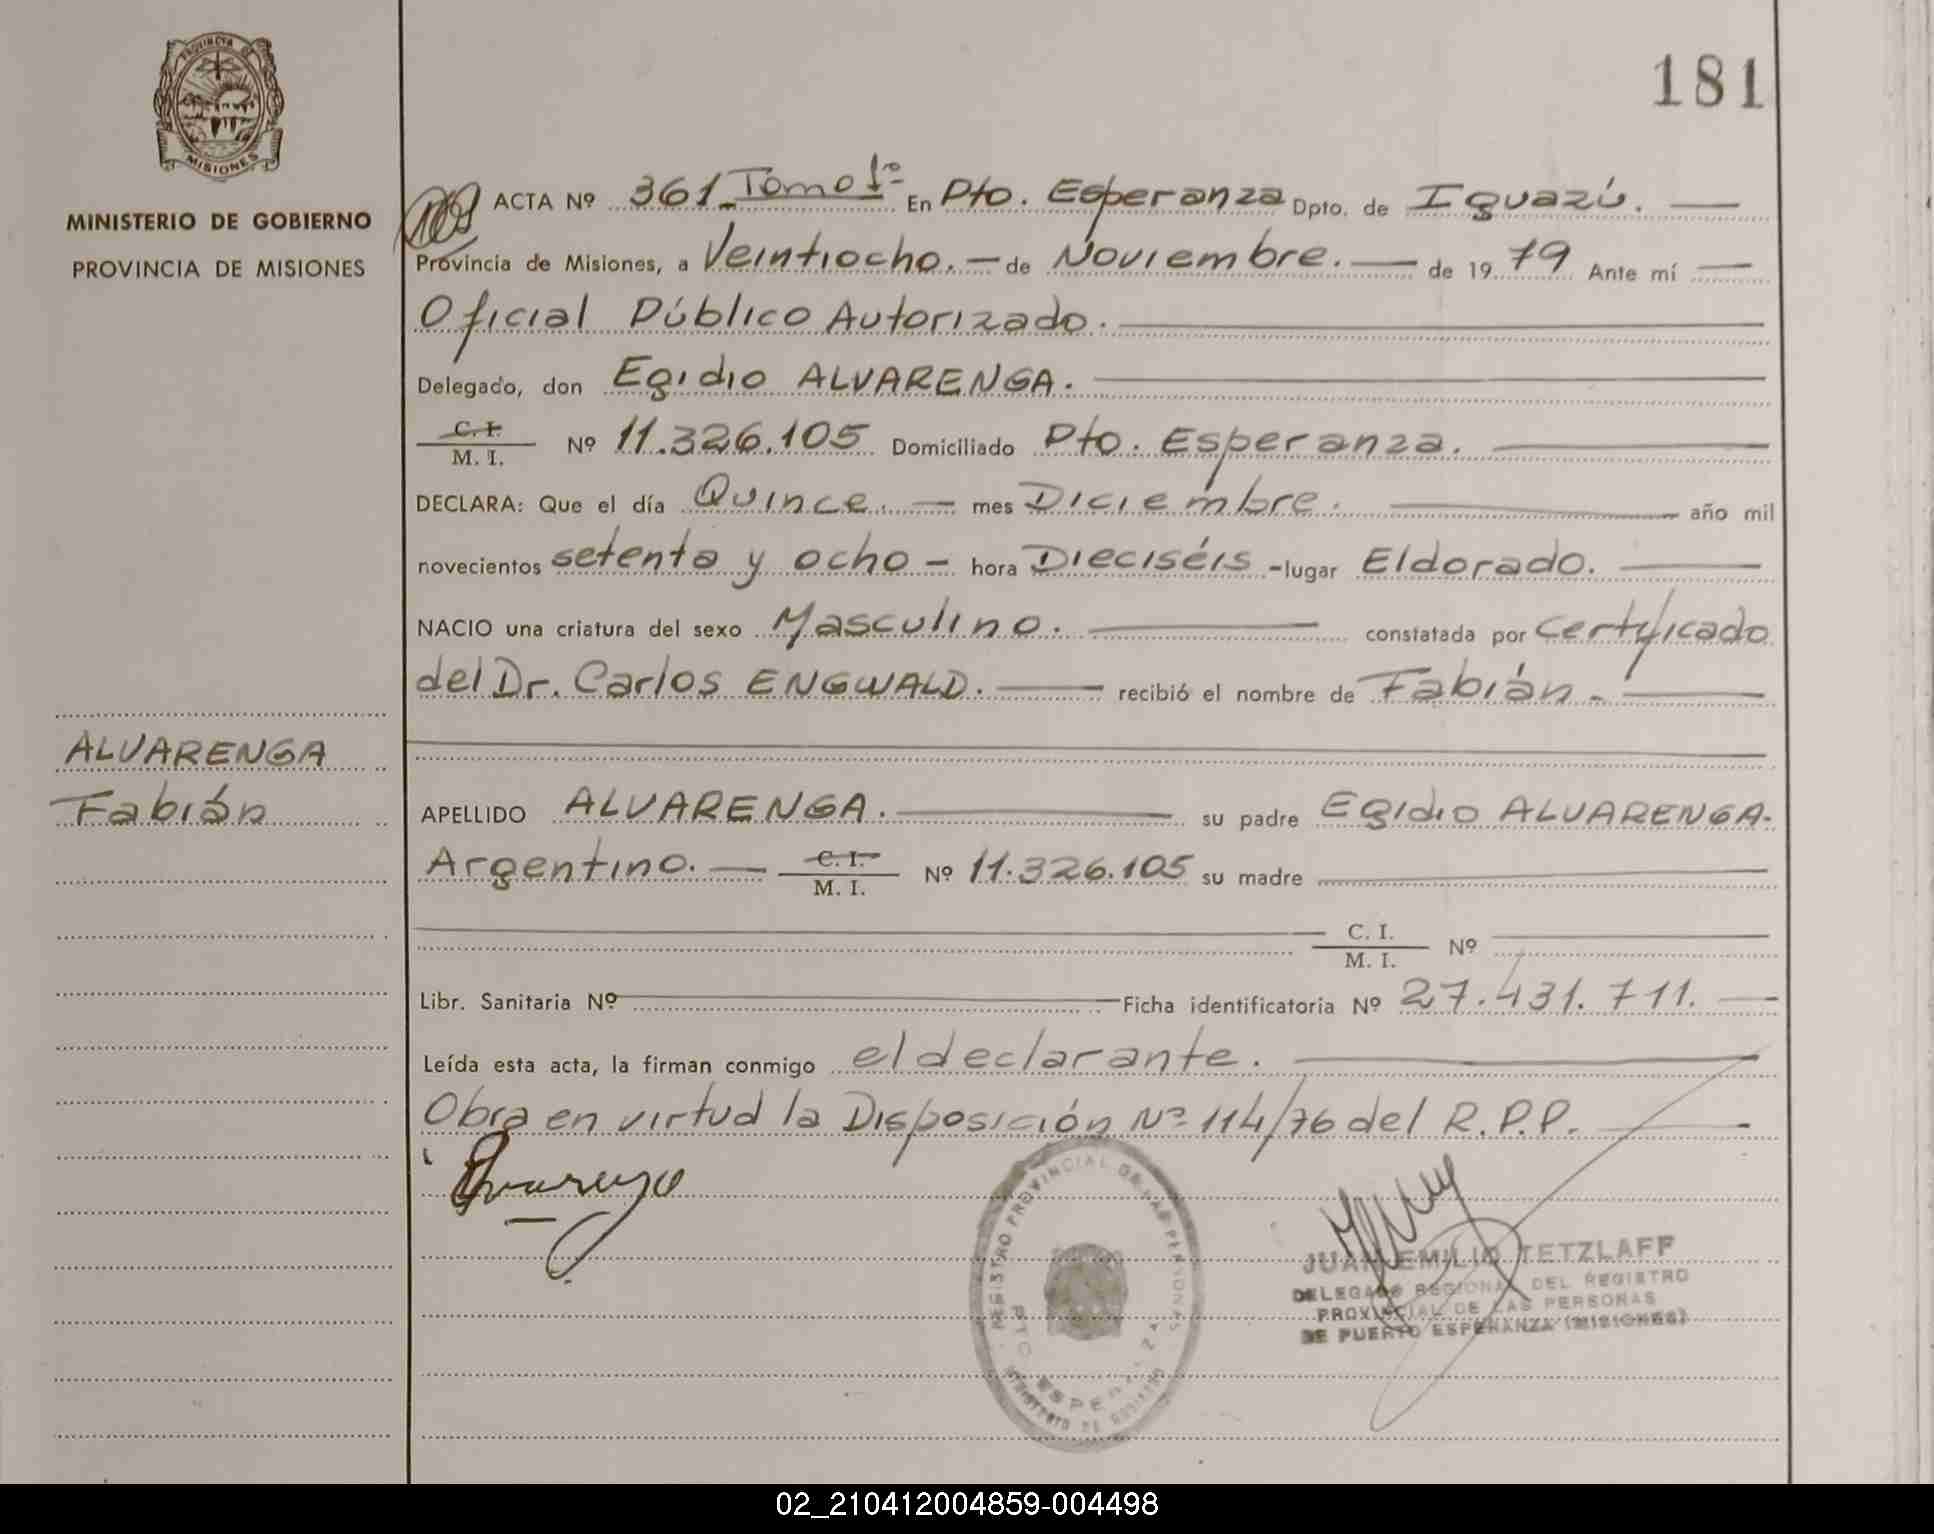 181
PROVINCIA DE
MISIONES
MINISTERIO DE GOBIERNO
PROVINCIA DE MISIONES
ACTA Nº 361 Tomo 1º En Pto. Esperanza Dpto. de Iguazú. —
Provincia de Misiones, a Veintiocho. — de Noviembre. — de 1979 Ante mí —
Oficial Público Autorizado.
Delegado, don Egidio ALVARENGA.
C. I.
M. I. Nº 11.326.105 Domiciliado Pto. Esperanza.
DECLARA: Que el día Quince. — mes Diciembre. — año mil
novecientos setenta y ocho - hora Dieciséis - lugar Eldorado. —
NACIO una criatura del sexo Masculino. — constatada por Certificado
del Dr. Carlos ENGWALD. — recibió el nombre de Fabián. —
ALVARENGA
Fabián
APELLIDO ALVARENGA. — su padre Egidio ALVARENGA.
Argentino. — C. I.
M. I. Nº 11.326.105 su madre
C. I.
M. I. Nº
Libr. Sanitaria Nº — Ficha identificatoria Nº 27.431.711. —
Leída esta acta, la firman conmigo el declarante. —
Obra en virtud la Disposición Nº 114/76 del R.P.P. —
REGISTRO PROVINCIAL DE LAS PERSONAS
MINISTERIO DE GOBIERNO
JUAN EMILIO TETZLAFF
DELEGADO REGIONAL DEL REGISTRO
PROVINCIAL DE LAS PERSONAS
DE PUERTO ESPERANZA (MISIONES)
02_210412004859-004498